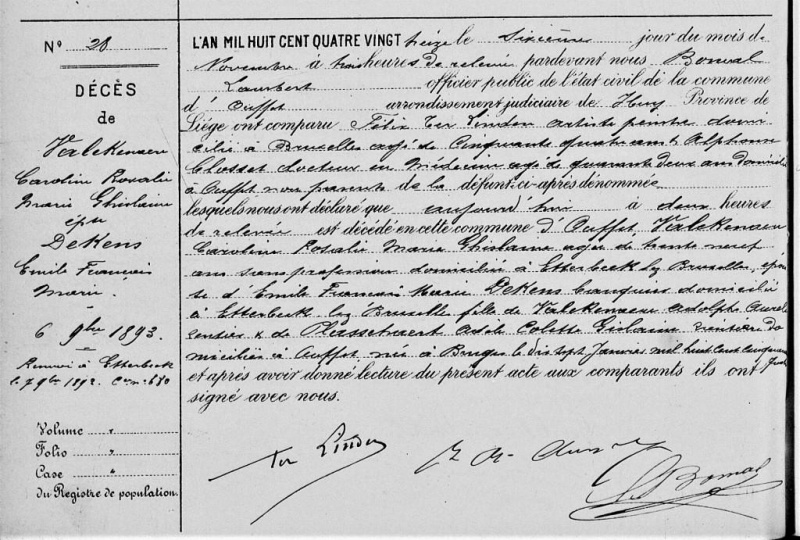 N° 28
DÉCÈS
de
Valckenaere
Caroline Rosalie
Marie Ghislaine
épse
DeKens
Emile François
Marie.
6 9bre 1893.
Renvoi à Etterbeek
Volume „
Folio „
Case „
du Registre de population.
L'AN MIL HUIT CENT QUATRE VINGT treize le sixième jour du mois de
Novembre à trois heures de relevée pardevant nous Bomal
Lambert officier public de l'état civil de la commune
d' Ouffet arrondissement judiciaire de Huy Province de
Liége ont comparu Félix Ter Linden artiste peintre domi
cilié à Bruxelles agé de Cinquante quatre ans & Alphonse
Closset docteur en Médecine agé de quarante deux ans domicilié
à Ouffet non parents de la défunte ci-après dénommée
lesquels nous ont déclaré que aujourd'hui à deux heures
de relevée est décédé en cette commune d'Ouffet, Valckenaere
Caroline Rosalie Marie Ghislaine agée de trente neuf
ans sans profession domiciliée à Etterbeek lez Bruxelles, épou
se d'Emile François Marie DeKens banquier domicilié
à Etterbeek lez Bruxelles fille de Valckenaere Adolphe
rentier & de Adèle Colette Ghislaine rentière do
miciliée à Ouffet née à Bruges le dix sept Janvier mil huit cent cinquante
et après avoir donné lecture du présent acte aux comparants ils ont
signé avec nous.
Ter Linden
Bomal